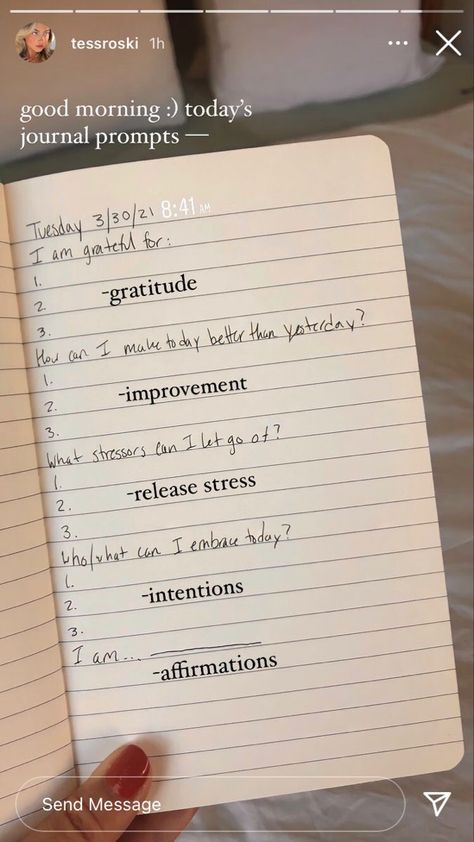 tessroski 1h
good morning :) today's
journal prompts —
Tuesday 3/30/21 8:41 AM
I am grateful for:
1.
2. -gratitude
3.
How can I make today better than yesterday?
1.
2. -improvement
3.
What stressors can I let go of?
1.
2. -release stress
3.
Who/what can I embrace today?
1.
2. -intentions
3.
I am... ________
-affirmations
Send Message